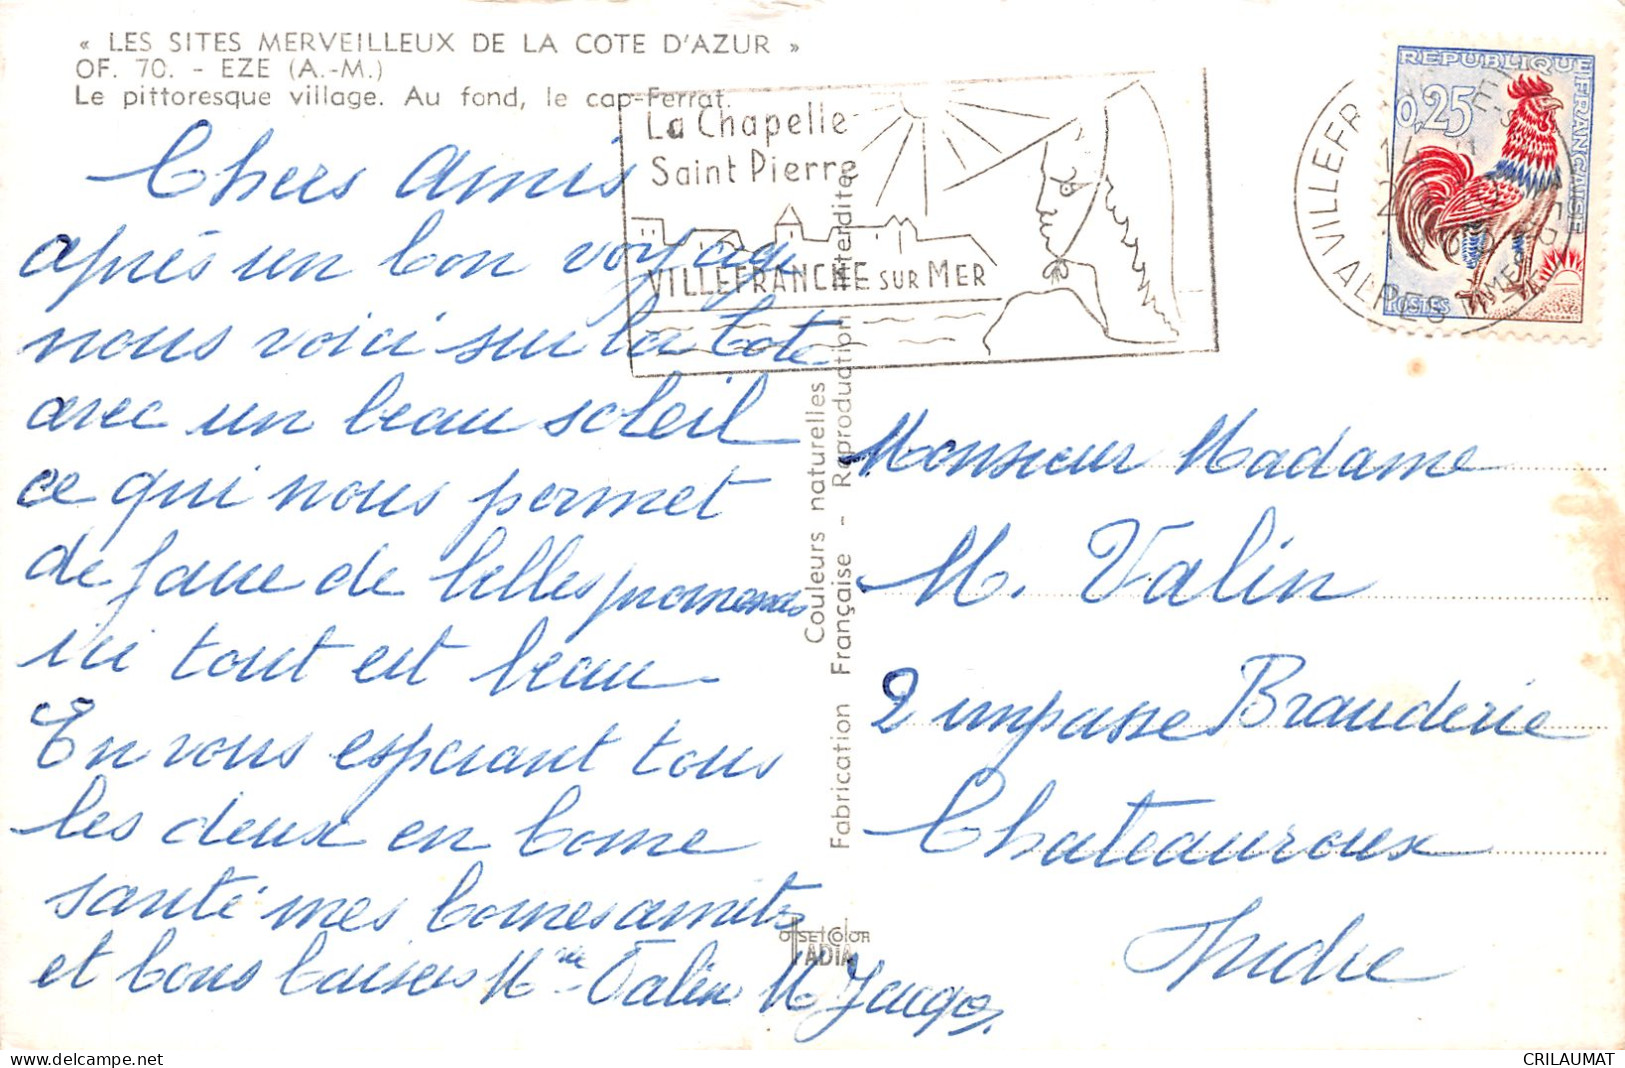 « LES SITES MERVEILLEUX DE LA COTE D'AZUR »
OF. 70. - EZE (A.-M.)
Le pittoresque village. Au fond, le cap-Ferrat.
La Chapelle
Saint Pierre
VILLEFRANCHE SUR MER
REPUBLIQUE FRANÇAISE
0,25
POSTES
Chers Amis
après un bon voyage
nous voici sur la Cote
avec un beau soleil
ce qui nous permet
de faire de belles promenades
ici tout est beau
En vous esperant tous
les deux en bonne
santé mes bonnes amitiés
et bons baisers Mme Valin M
Couleurs naturelles
Fabrication Française - Reproduction interdite
Monsieur Madame
M. Valin
2 impasse Brauderie
Chateauroux
Indre
OFFSET COLOR
IADIA
CRILAUMAT